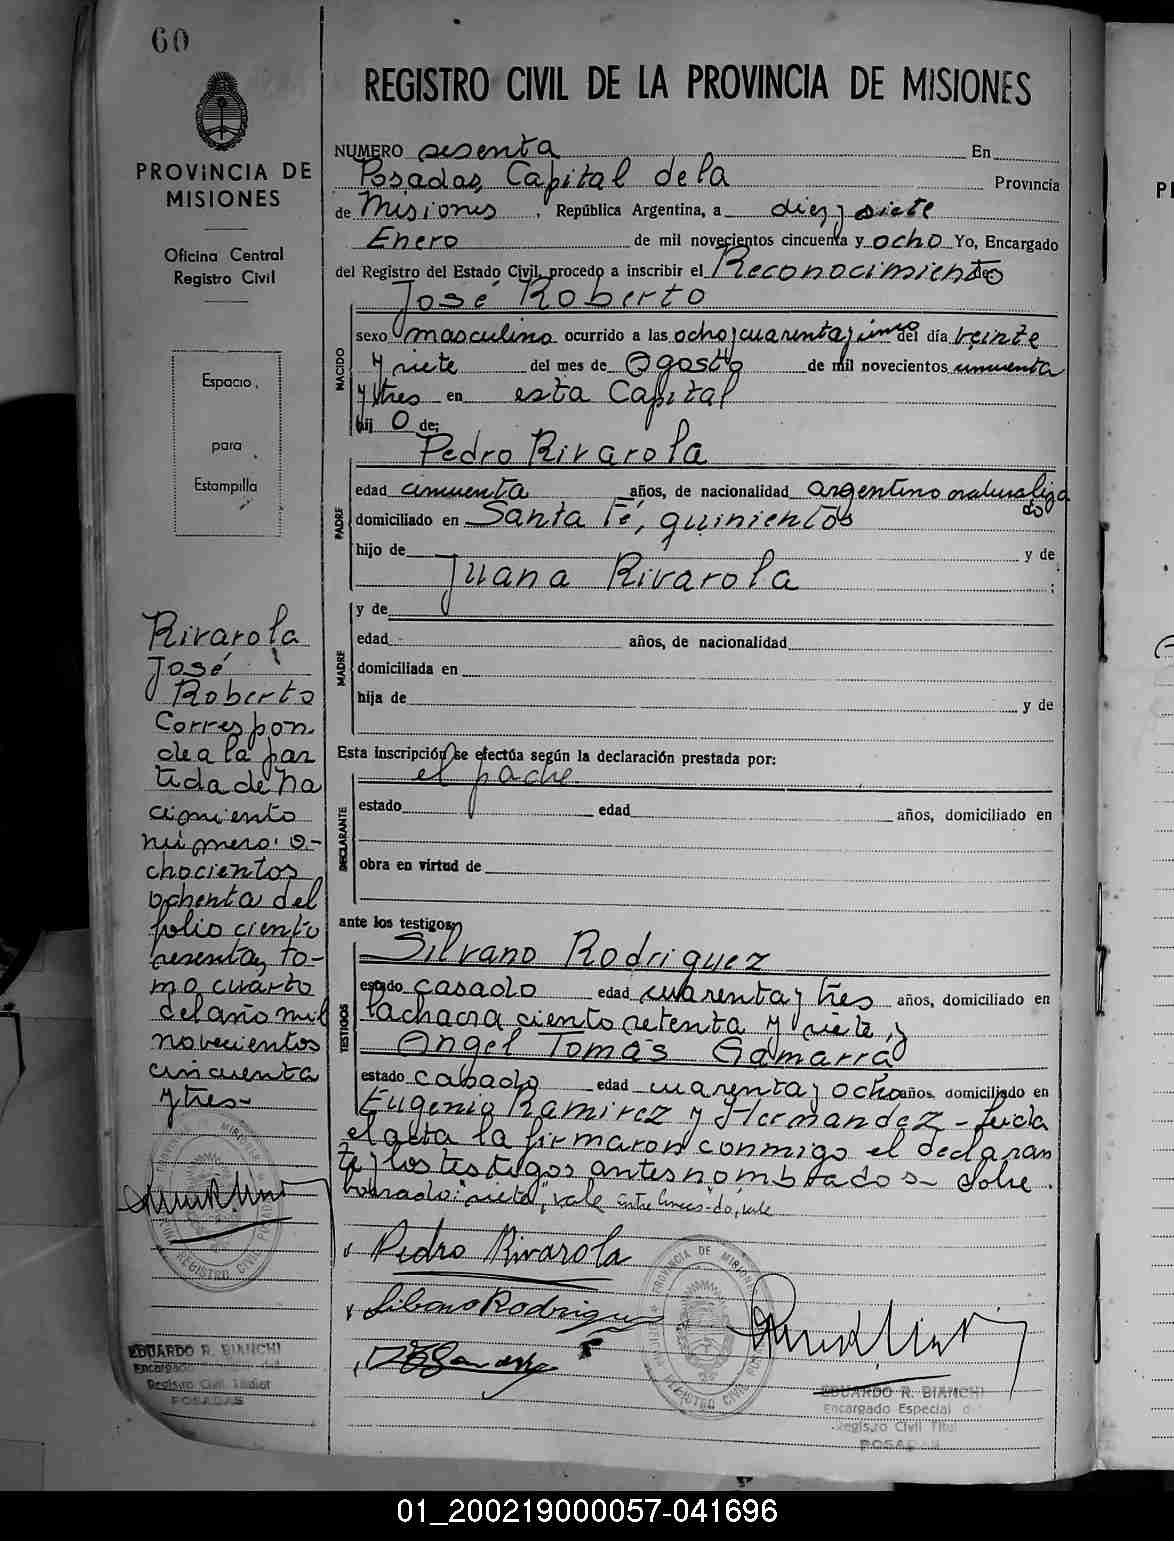 60
PROVINCIA DE
MISIONES
Oficina Central
Registro Civil
Espacio
para
Estampilla
Rivarola
José
Roberto
Correspon
de a la par
tida de na
cimiento
número: o-
chocientos
ochenta del
folio ciento
sesenta, to-
mo cuarto
del año mil
novecientos
cincuenta
y tres-
EDUARDO R. BIANCHI
Encargado
Registro Civil Titular
POSADAS
REGISTRO CIVIL DE LA PROVINCIA DE MISIONES
NUMERO sesenta En
Posadas, Capital de la Provincia
de Misiones, República Argentina, a diez y siete
Enero de mil novecientos cincuenta y ocho Yo, Encargado
del Registro del Estado Civil, procedo a inscribir el Reconocimiento de
José Roberto
NACIDO
sexo masculino ocurrido a las ocho y cuarenta y cinco del día veinte
y siete del mes de Agosto de mil novecientos cincuenta
y tres en esta Capital
hij o de:
Pedro Rivarola
PADRE
edad cincuenta años, de nacionalidad argentino naturaliza
do
domiciliado en Santa Fé, quinientos
hijo de y de
Juana Rivarola ;
MADRE
y de
edad años, de nacionalidad
domiciliada en
hija de y de
Esta inscripción se efectúa según la declaración prestada por:
el padre
DECLARANTE
estado edad años, domiciliado en
obra en virtud de
ante los testigos
Silvano Rodriguez
TESTIGOS
estado casado edad cuarenta y tres años, domiciliado en
la chacra ciento setenta y siete, y
Angel Tomás Gamarra
estado casado edad cuarenta y ocho años, domiciliado en
Eugenio Ramirez y Hernandez - Leida
el acta la firmaron conmigo el declaran
te y los testigos antes nombrados - Sobre
borrado: "siete", vale entre lineas - do, vale
Pedro Rivarola
Silbano Rodriguez
PROVINCIA DE MISIONES
REGISTRO CIVIL
EDUARDO R. BIANCHI
Encargado Especial del
Registro Civil Titul
POSADAS
01_200219000057-041696